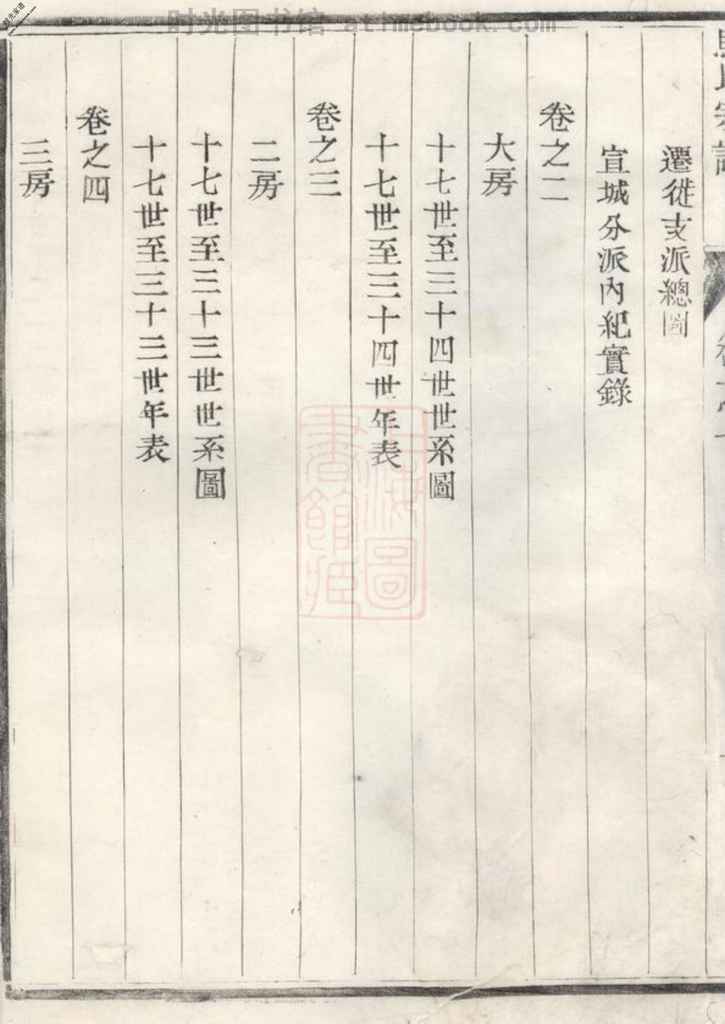 时光图书馆 atimebook.com
遷徙支派總圖
宣城分派內紀實錄
卷之二
大房
十七世至三十四世世系圖
十七世至三十四世年表
卷之三
二房
十七世至三十三世世系圖
十七世至三十三世年表
卷之四
三房